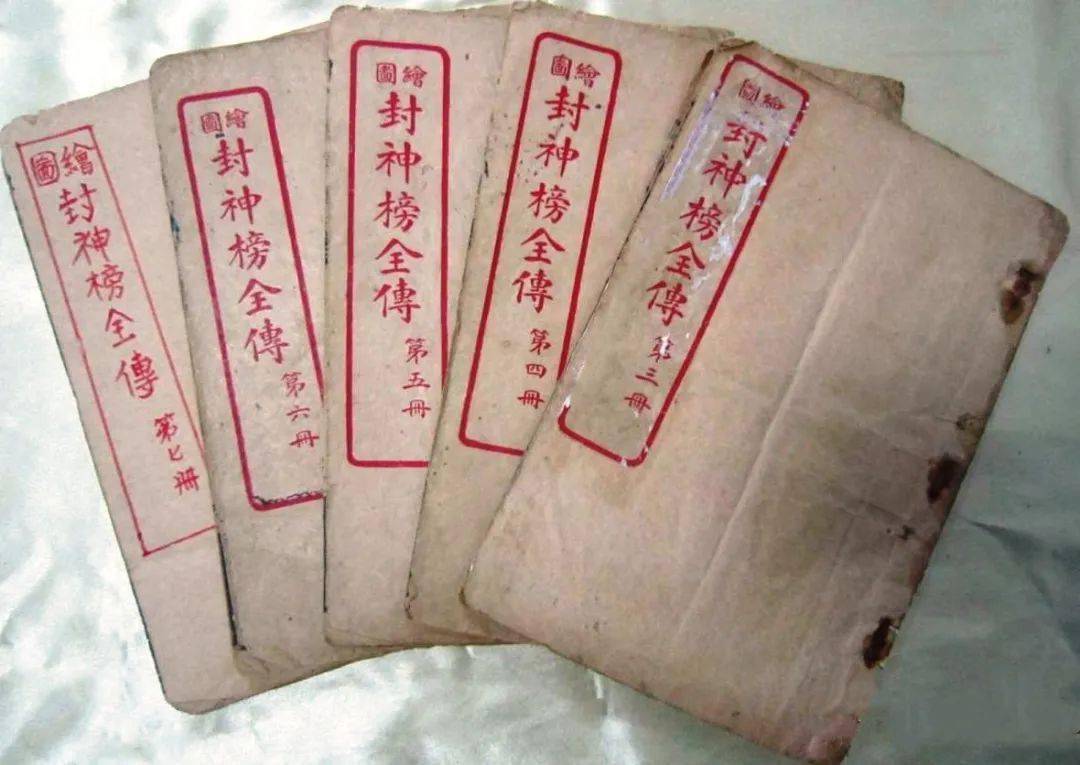 繪圖
封神榜全傳
第三冊
繪圖
封神榜全傳
第四冊
繪圖
封神榜全傳
第五冊
繪圖
封神榜全傳
第六冊
繪圖
封神榜全傳
第七冊